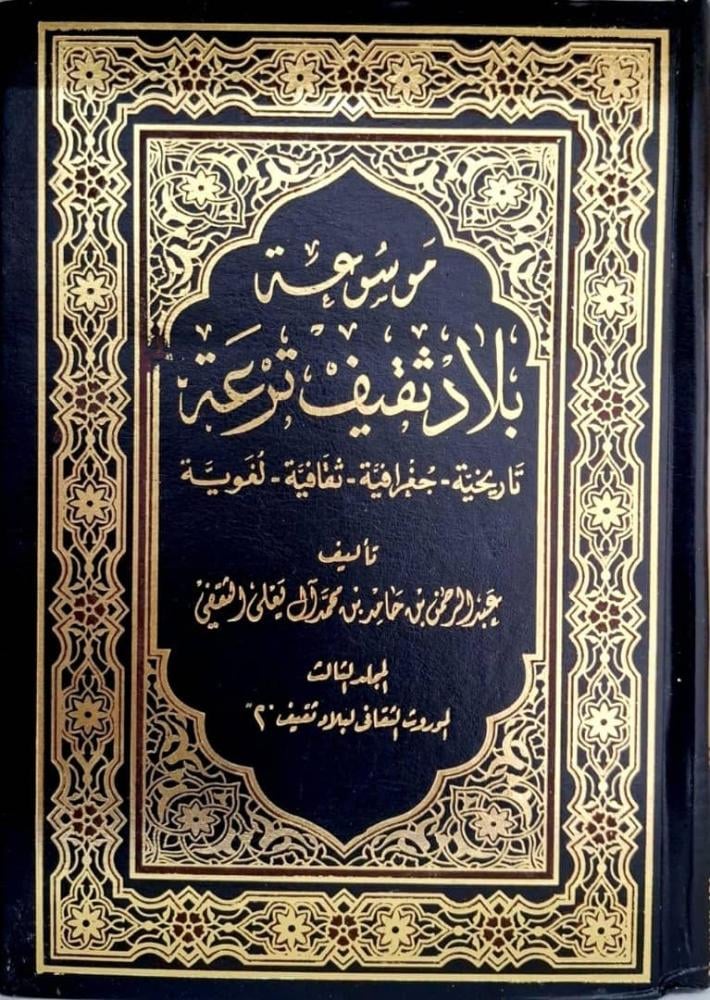 موسوعة
بلاد ثقيف ترعة
تاريخية - جغرافية - ثقافية - لغوية
تأليف
عبد الرحمن بن حامد بن محمد آل يعلى الثقفي
المجلد الثالث
الموروث الثقافي لبلاد ثقيف "٢"